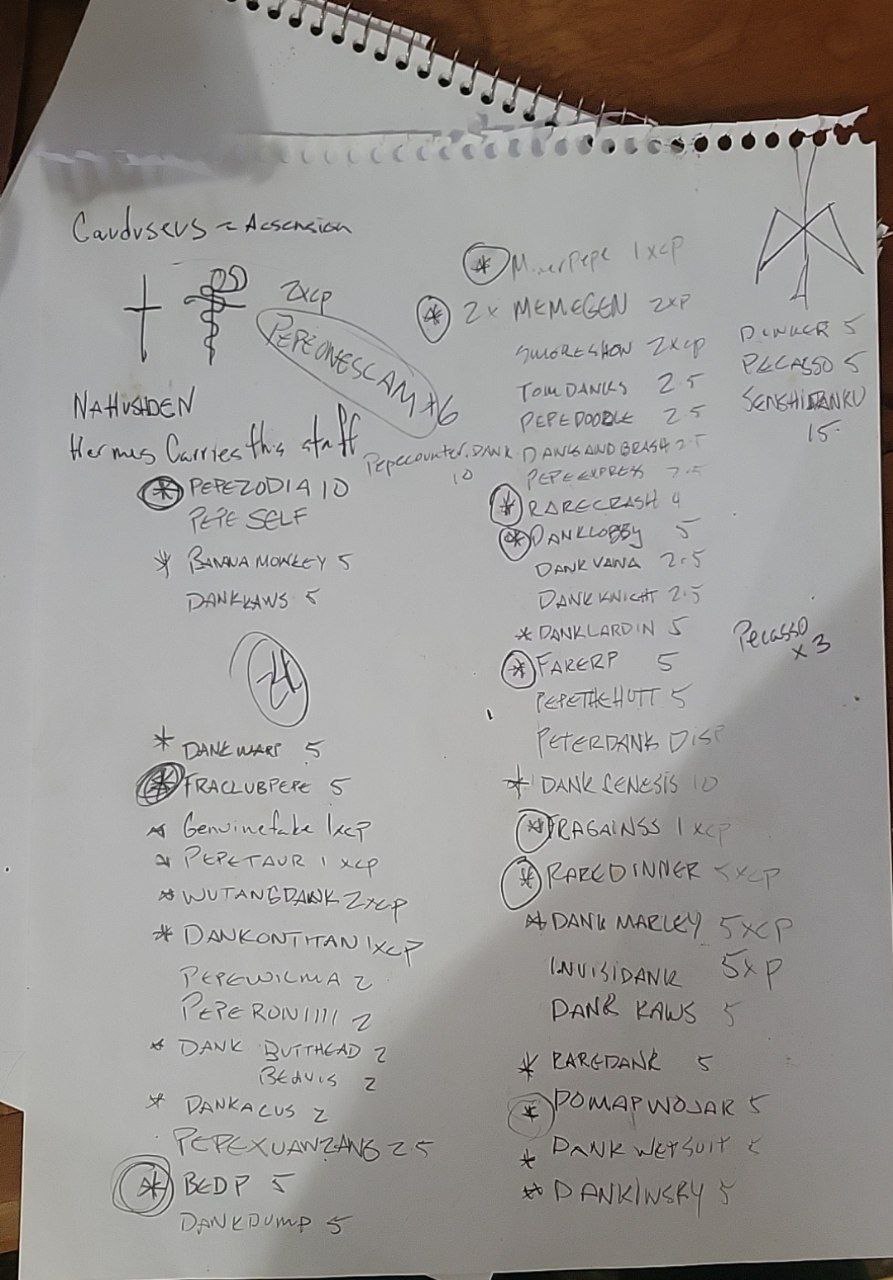 Cauduseus ~ Acsension
2xcp
PEPEONESCAM *6
NAHUSHDEN
Hermus Carries this staff
Pepecounter.DANK
10
* PEPEZODIA 10
PEPE SELF
* BANNA MONKEY 5
DANKKAWS 5
* DANKWARP 5
* FRACLUBPEPE 5
* Genuinefake 1xcp
* PEPETAUR 1 xcp
* WUTANGDANK 2xcp
* DANKONTITAN 1xcp
PEPEWILMA 2
PEPERONIIII 2
* DANK BUTTHEAD 2
BEAVIS 2
* DANKACUS 2
PEPEXUANZANG 2.5
* BEDP 5
DANKDUMP 5
* MinerPepe 1xcp
* 2x MEMEGEN 2XP
SMORESHOW 2xcp
TOMDANKS 2.5
PEPEDOODLE 2.5
DANKSANDBRASH 2.5
PEPEEXPRESS 2.5
* RARECRASH 4
* DANKLOBBY 5
DANKVANA 2.5
DANKKNIGHT 2.5
* DANKLARDIN 5
* FAKERP 5
PEPETHEHUTT 5
PETERDANK DISP
* DANKGENESIS 10
* FRAGAINSS 1xcp
* RAREDINNER 5xcp
* DANK MARLEY 5XCP
INVISIDANK 5XP
DANK KAWS 5
* RAREDANK 5
* POMAPWOJAR 5
* DANK WETSUIT 5
* DANKINSRY 5
DINKER 5
PECASSO 5
SENSHIDANKU
15
Pecasso
x 3